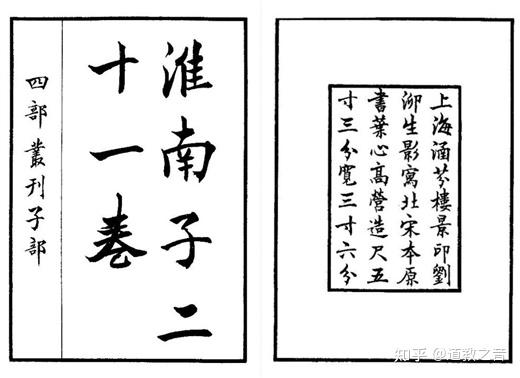 淮南子二
十一卷
四部叢刊子部
上海涵芬樓景印劉
泖生影寫北宋本原
書葉心高營造尺五
寸三分寬三寸六分
知乎 @道教之音